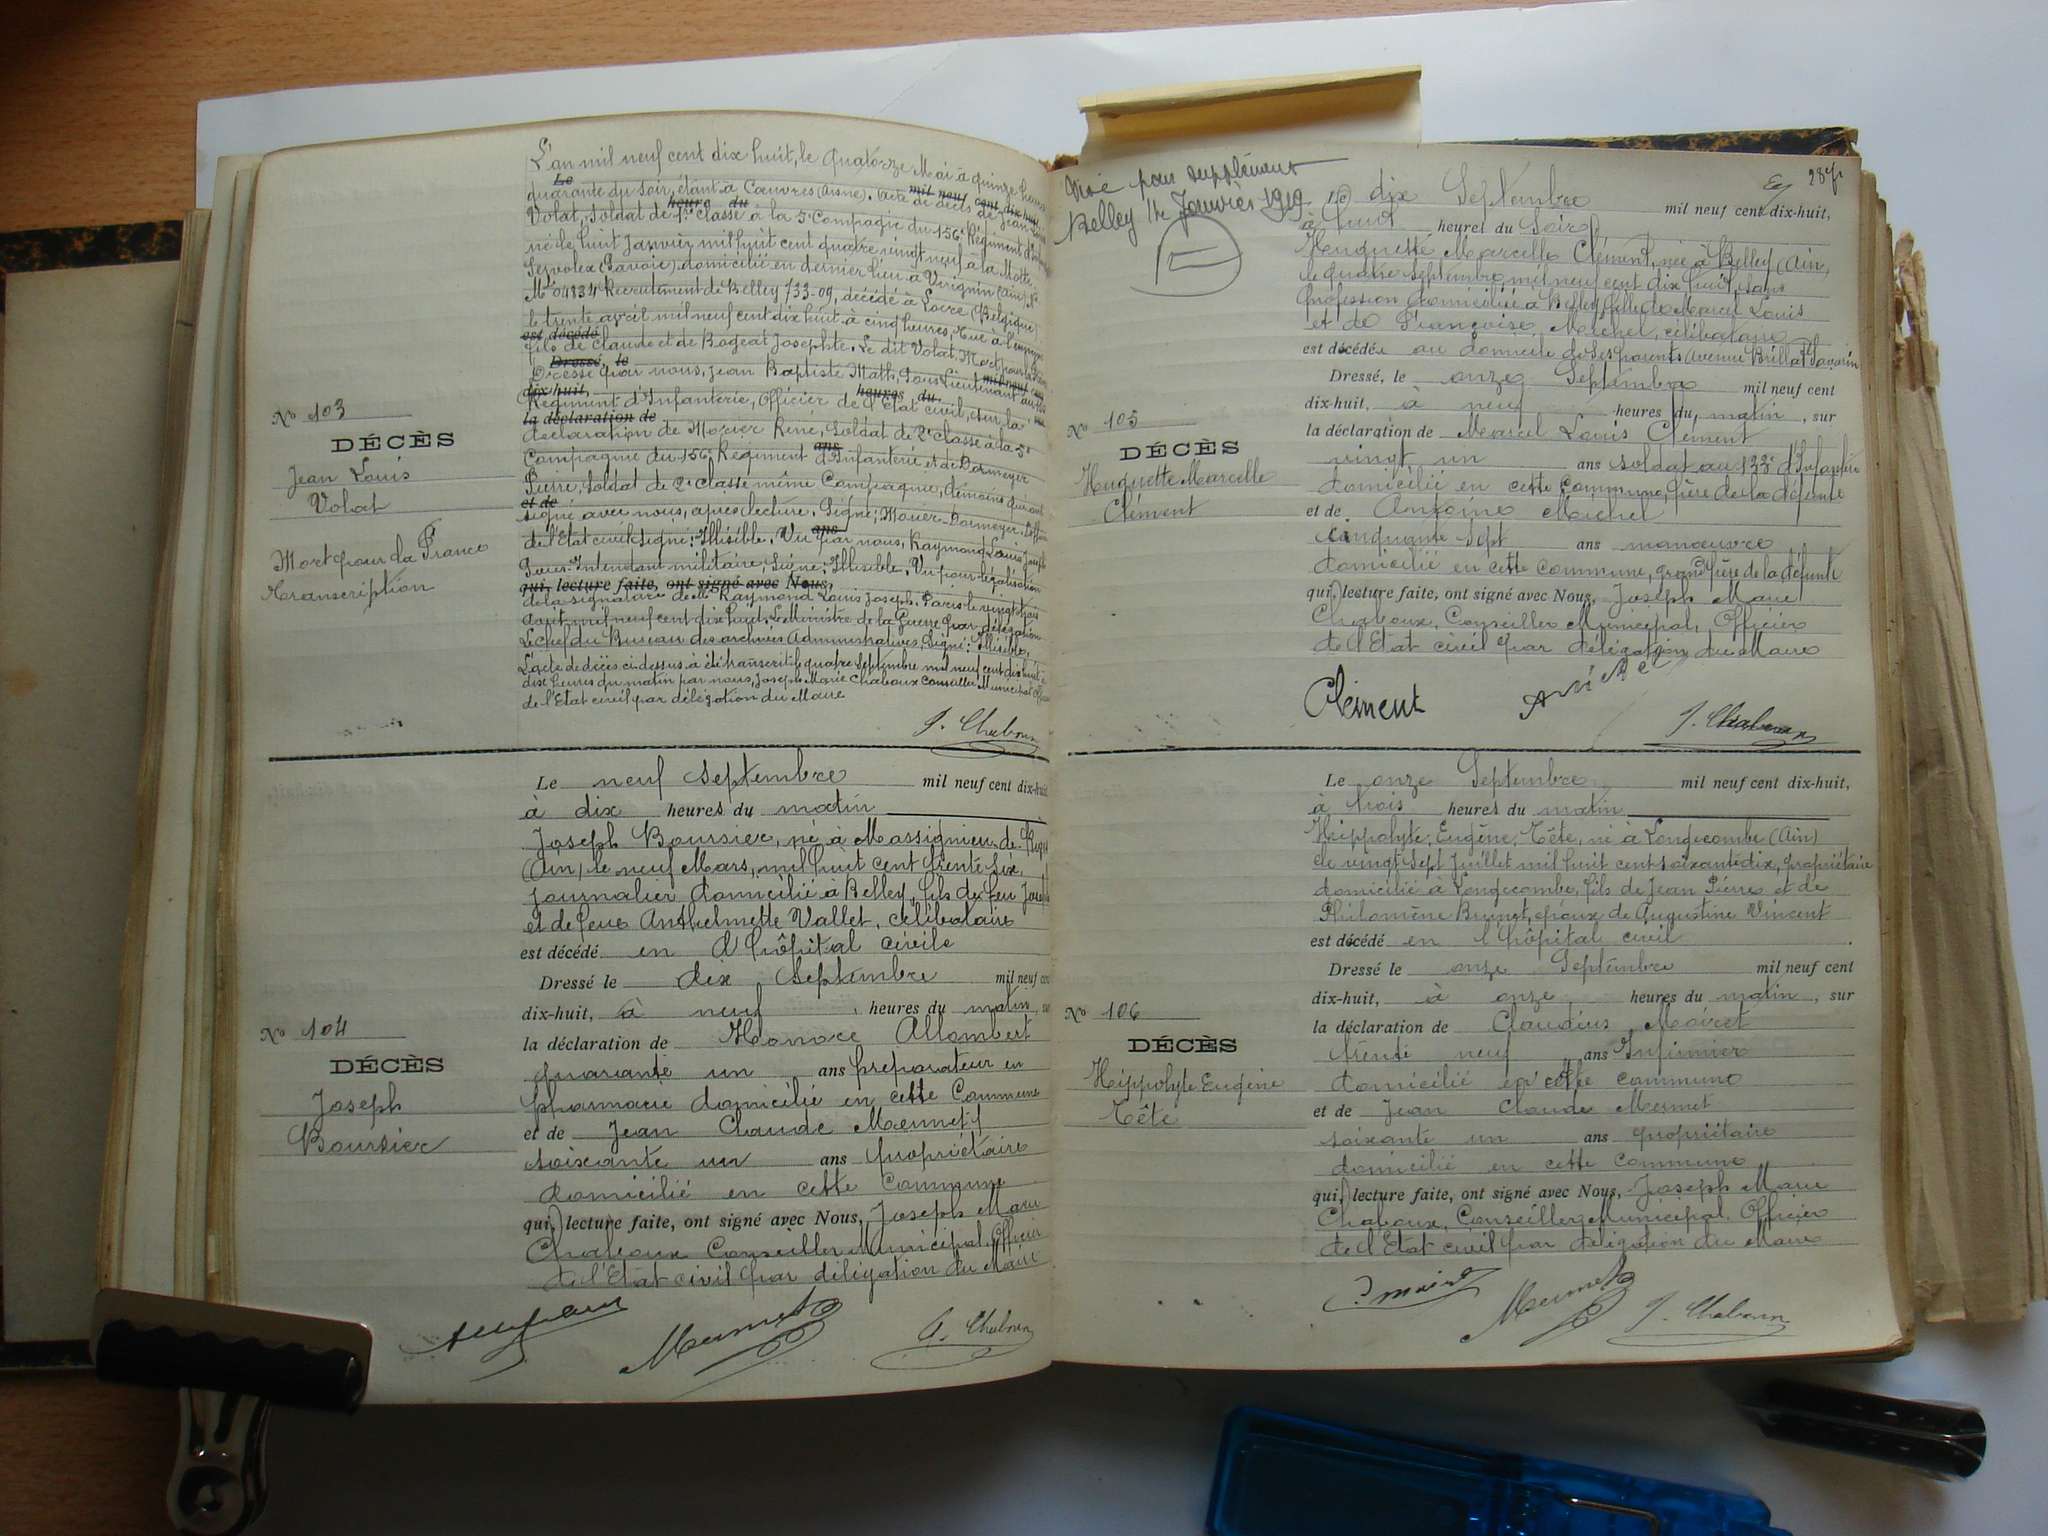 L'an mil neuf cent dix huit, le quatorze Mai à quinze heures
quarante du soir, étant à Cœuvres (Aisne). Acte de décès de Jean Louis
Volat, Soldat de 1re classe à la 5e Compagnie du 156e Régiment d'
né le huit Janvier mil huit cent quatre vingt neuf à la Motte
Servolex (Savoie) domicilié en dernier lieu à Virignin (Ain),
Mle 04834 Recrutement de Belley 733-09, décédé à Locre (Belgique)
le trente avril mil neuf cent dix huit à cinq heures, Tué à l'ennemi
fils de Claude et de Bogeat Josephte. Le dit Volat, Mort pour la France
Dressé par nous, Jean Baptiste Math, Sous Lieutenant au 156e
Régiment d'Infanterie, Officier de l'Etat civil, sur la
déclaration de Morier René, Soldat de 2e classe à la 5e
Compagnie du 156e Régiment d'Infanterie et de Dormeyer
Pierre, Soldat de 2e classe même Compagnie, témoins qui ont
signé avec nous, après lecture. Signé:
de l'Etat civil Signé: Illisible. Vu par nous, Raymond Louis Joseph
Sous-Intendant militaire, Signé: Illisible. Vu pour légalisation
de la signature de Mr Raymond Louis Joseph. Paris le vingt
Août mil neuf cent dix huit. Le Ministre de la Guerre par délégation
Le chef du Bureau des archives Administratives, Signé: Illisible,
L'acte de décès ci-dessus a été transcrit le quatre Septembre mil neuf cent dix huit à
dix heures du matin par nous, Joseph Marie Chaboux Conseiller Municipal
de l'Etat civil par délégation du Maire
J. Chaboux
No 103
DÉCÈS
Jean Louis
Volat
Mort pour la France
Transcription
Le neuf Septembre mil neuf cent dix-huit
à dix heures du matin
Joseph Boursier, né à Massignieu-de-Rives
(Ain) le neuf Mars, mil huit cent trente six,
journalier domicilié à Belley, fils de feu Joseph
et de feue Anthelmette Vallet, célibataire
est décédé en l'hôpital civile
Dressé le dix Septembre mil neuf cent
dix-huit, à neuf heures du matin, sur
la déclaration de Honoré Allombert
quarante un ans préparateur en
pharmacie domicilié en cette Commune
et de Jean Claude Mermet
soixante un ans propriétaire
domicilié en cette Commune
qui, lecture faite, ont signé avec Nous, Joseph Marie
Chaboux Conseiller Municipal Officier
de l'Etat civil par délégation du Maire
Mermet
J. Chaboux
No 104
DÉCÈS
Joseph
Boursier
Visé pour supplément
Belley 14 Janvier 1919
28
Le dix Septembre mil neuf cent dix-huit,
à huit heures du Soir
Huguette Marcelle Clément, née à Belley (Ain,
le quatre septembre mil neuf cent dix huit, sans
profession domiciliée à Belley fille de Marcel Louis
et de Françoise Michel, célibataire
est décédée au domicile de ses parents Avenue Brillat Savarin
Dressé, le onze Septembre mil neuf cent
dix-huit, à neuf heures du matin, sur
la déclaration de Marcel Louis Clément
vingt un ans soldat au 133e d'Infanterie
domicilié en cette commune, père de la défunte
et de Antoine Michel
cinquante-sept ans manœuvre
domicilié en cette commune, grand père de la défunte
qui, lecture faite, ont signé avec Nous, Joseph Marie
Chaboux, Conseiller Municipal, Officier
de l'Etat civil par délégation du Maire
Clément
J. Chaboux
No 105
DÉCÈS
Huguette Marcelle
Clément
Le onze Septembre mil neuf cent dix-huit,
à trois heures du matin
Hippolyte Eugène Tête, né à Longecombe (Ain)
le vingt sept Juillet mil huit cent soixante dix, propriétaire
domicilié à Longecombe, fils de Jean Pierre et de
Philomène Brunet, époux de Augustine Vincent
est décédé en l'hôpital civil
Dressé le onze Septembre mil neuf cent
dix-huit, à onze heures du matin, sur
la déclaration de Claudius Moiret
trente neuf ans Infirmier
domicilié en cette commune
et de Jean Claude Mermet
soixante un ans propriétaire
domicilié en cette commune
qui, lecture faite, ont signé avec Nous, Joseph Marie
Chaboux, Conseiller Municipal, Officier
de l'Etat civil par délégation du Maire
Mermet
J. Chaboux
No 106
DÉCÈS
Hippolyte Eugène
Tête